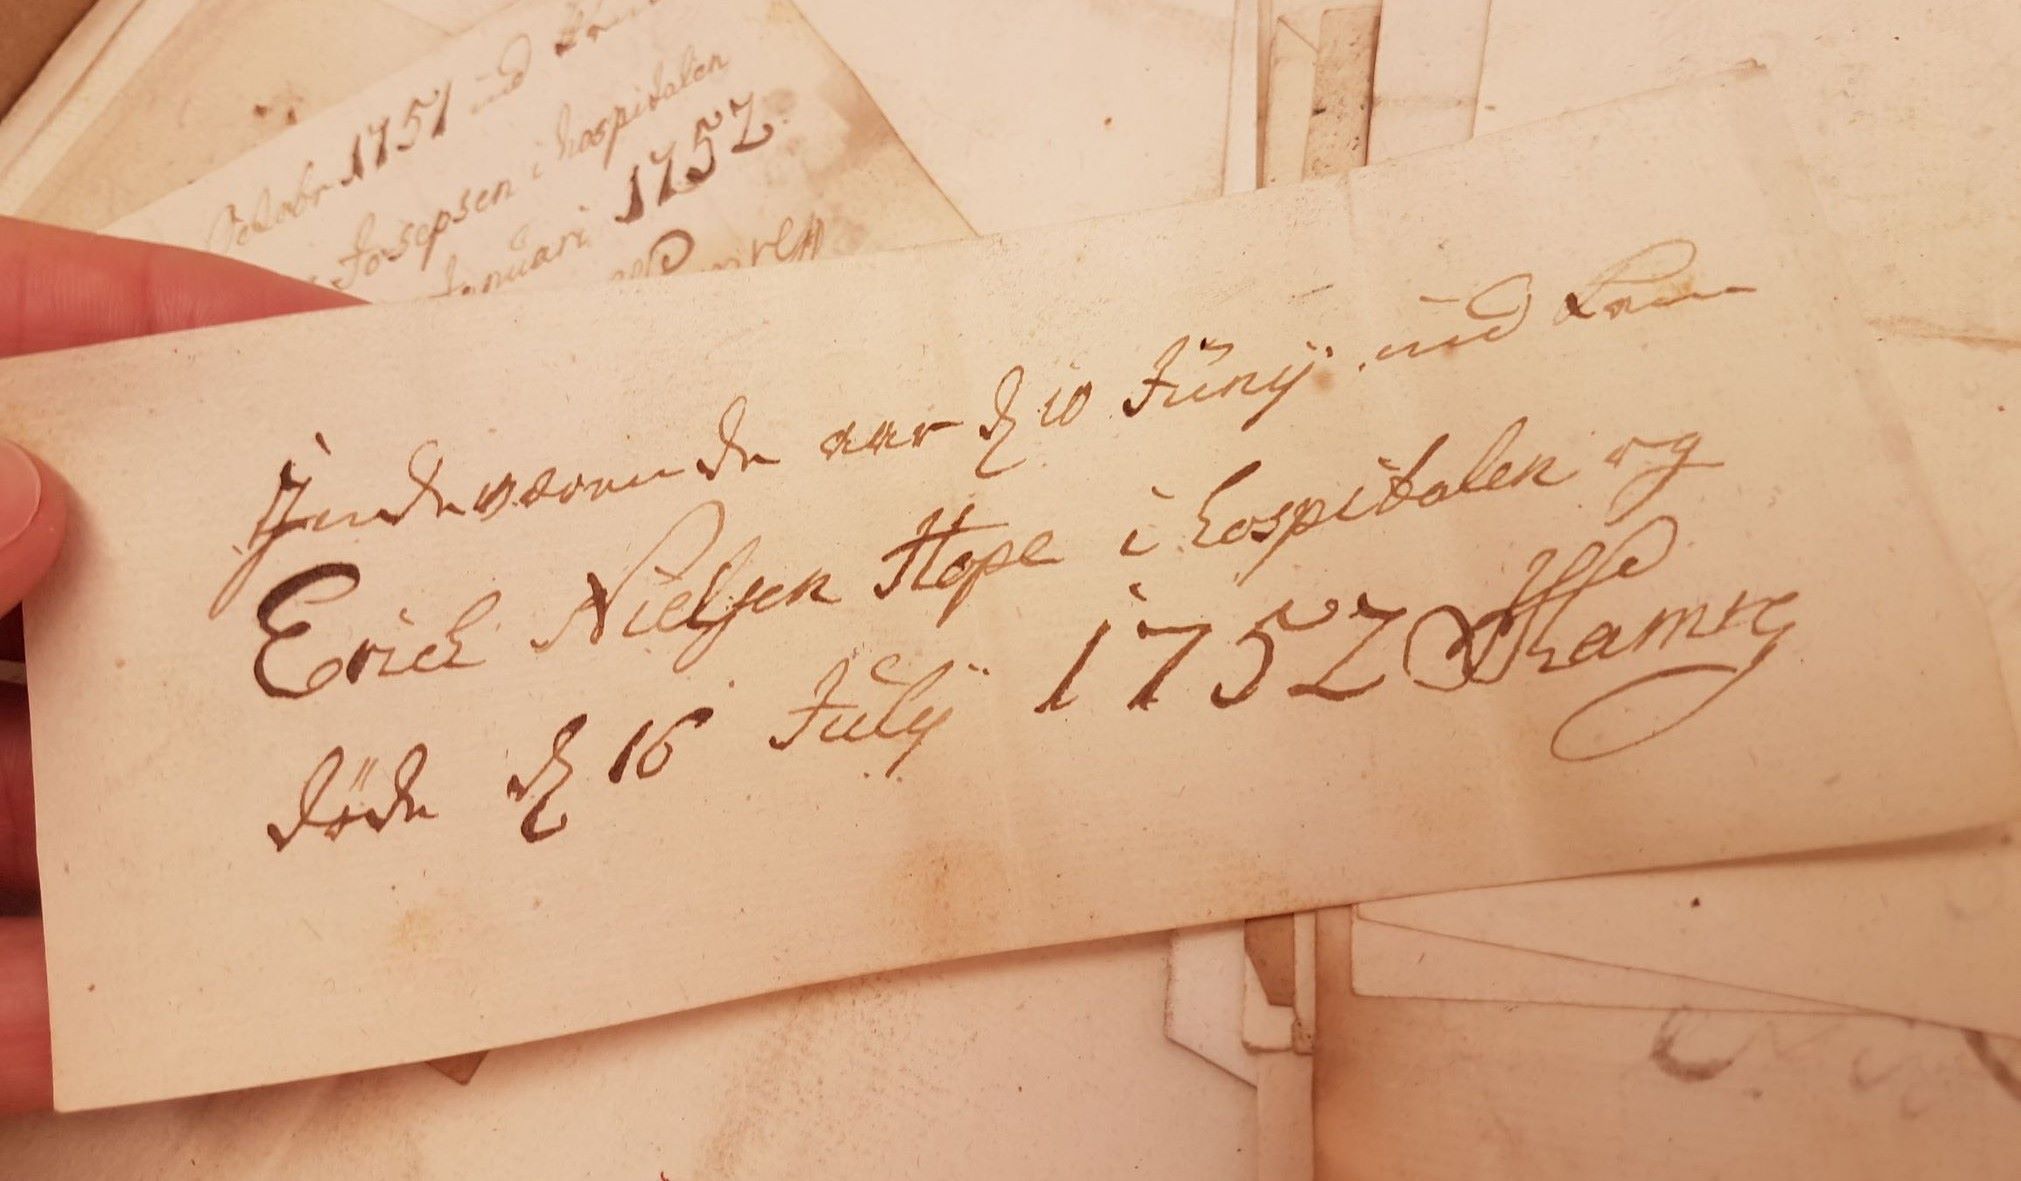 October 1751 ind kom
Josepsen i hospitalen
Januari 1752
Indeværende aar d 10 Junÿ ind kom
Erich Nielsen Hope i hospitalen og
döde d 16 Julÿ 1752